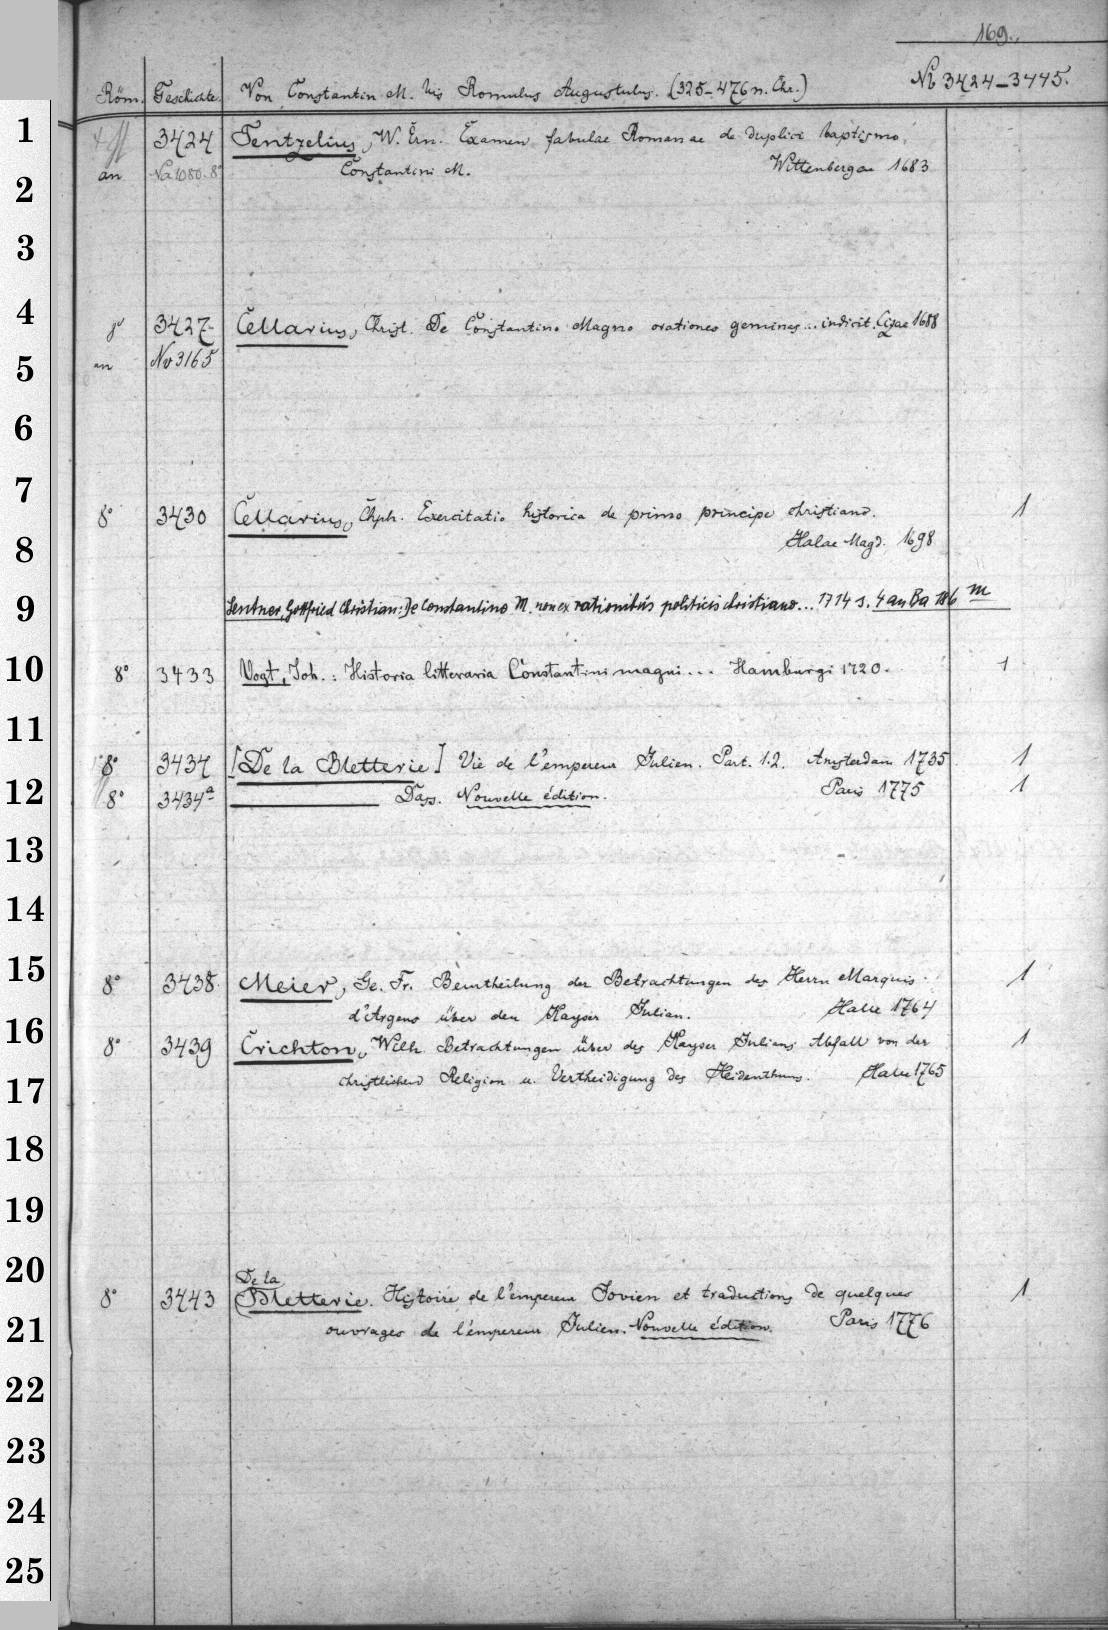 169.
Röm. Geschichte. Von Constantin M. bis Romulus Augustulus. (325-476 n. Chr.) No 3424-3445.
1
3424 Tentzelius, W. Ern. Examen fabulae Romanae de duplici baptismo
an Na 1080. 8° Constantini M. Wittenbergae 1683
2
3
4
3427 Cellarius, Christ. De Constantino Magno orationes geminas... indicit. Cizae 1688
an Nv 3165
5
6
7
8° 3430 Cellarius, Chph. Exercitatio historica de primo principe christiano. 1
8
Halae Magd. 1698
9
Lentner, Gottfried Christian: De Constantino M. non ex rationibus politicis christiano... 1714 s. 4 an Ba 186 m
10
8° 3433 Vogt, Joh.: Historia litteraria Constantini magni... Hamburgi 1720. 1
11
8° 3434 [De la Bletterie] Vie de l'empereur Julien. Part. 1.2. Amsterdam 1735 1
12
8° 3434a Dass. Nouvelle édition. Paris 1775 1
13
14
15
8° 3438 Meier, Ge. Fr. Beurtheilung der Betrachtungen des Herrn Marquis 1
d'Argens über den Kayser Julian. Halle 1764
16
8° 3439 Crichton, Wilh. Betrachtungen über des Kayser Julians Abfall von der 1
christlichen Religion u. Vertheidigung des Heidenthums. Halle 1765
17
18
19
20
De la
8° 3443 (Bletterie. Histoire de l'empereur Jovien et traductions de quelques 1
21
ouvrages de l'empereur Julien. Nouvelle édition. Paris 1776
22
23
24
25